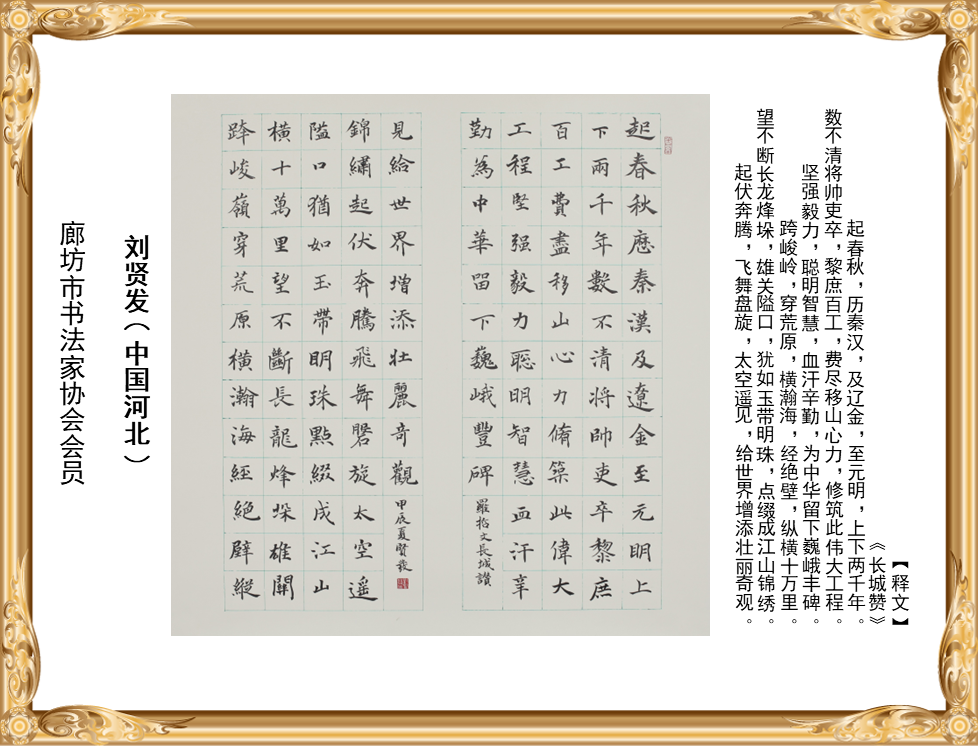 【释文】
《长城赞》
起春秋，历秦汉，及辽金，至元明，上下两千年。
数不清将帅吏卒，黎庶百工，费尽移山心力，修筑此伟大工程。
坚强毅力，聪明智慧，血汗辛勤，为中华留下巍峨丰碑。
跨峻岭，穿荒原，横瀚海，经绝壁，纵横十万里。
望不断长龙烽垛，雄关隘口，犹如玉带明珠，点缀成江山锦绣。
起伏奔腾，飞舞盘旋，太空遥见，给世界增添壮丽奇观。
起春秋厯秦漢及遼金至元明上
下兩千年數不清将帥吏卒黎庶
百工費盡移山心力脩築此偉大
工程堅强毅力聪明智慧血汗辛
勤為中華留下巍峨豐碑
羅哲文長城讚
跨峻嶺穿荒原橫瀚海經絕壁縱
橫十萬里望不斷長龍烽垛雄關
隘口猶如玉帶明珠點綴成江山
錦繡起伏奔騰飛舞磐旋太空遥
見給世界增添壯麗奇觀
甲辰夏賢發
刘贤发（中国河北）
廊坊市书法家协会会员